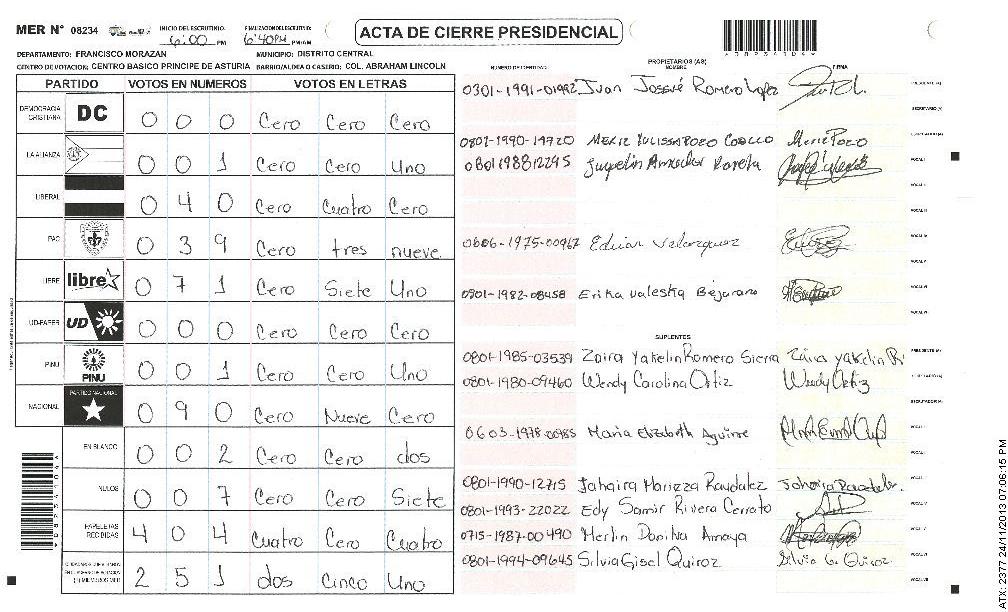 MER N° 08234 INICIO DEL ESCRUTINIO: 6:00 PM FINALIZACION DEL ESCRUTINIO: 6:40PM PM/AM
ACTA DE CIERRE PRESIDENCIAL
DEPARTAMENTO: FRANCISCO MORAZAN MUNICIPIO: DISTRITO CENTRAL
CENTRO DE VOTACION: CENTRO BASICO PRINCIPE DE ASTURIA BARRIO/ALDEA O CASERIO: COL. ABRAHAM LINCOLN
PARTIDO VOTOS EN NUMEROS VOTOS EN LETRAS
DEMOCRACIA CRISTIANA DC 0 0 0 Cero Cero Cero
LA ALIANZA 0 0 1 Cero Cero Uno
LIBERAL 0 4 0 Cero Cuatro Cero
PAC 0 3 9 Cero tres nueve
LIBRE libre 0 7 1 Cero Siete Uno
UD-FAPER UD 0 0 0 Cero Cero Cero
PINU PINU 0 0 1 Cero Cero Uno
NACIONAL PARTIDO NACIONAL 0 9 0 Cero Nueve Cero
EN BLANCO 0 0 2 Cero Cero dos
NULOS 0 0 7 Cero Cero Siete
PAPELETAS RECIBIDAS 4 0 4 Cuatro Cero Cuatro
2 5 1 dos Cinco Uno
PROPIETARIOS (AS)
NUMERO DE IDENTIDAD NOMBRE FIRMA
0301-1991-01992 Juan Jossué Romero Lopez
0801-1990-14720 Merie Pozo
0801198812295
0606-1975-00967 Edwin Velazquez
0901-1982-08458 Erika Valeska Bejarano
SUPLENTES
0801-1985-03539 Zaira Yakelin Romero Sierra Zaira Yakelin R
0801-1980-09460 Wendy Carolina Ortiz Wendy Ortiz
0603-1978-00985 Maria Elizabeth Aguirre
0801-1990-12715 Jahaira Maritza Raudalez
0801-1993-22022 Edy Samir Rivera Cerrato
0715-1987-00490 Merlin Danilva Amaya
0801-1994-09645 Silvia Gisel Quiroz Silvia G. Quiroz
ATX: 2377 24/11/2013 07:06:15 PM